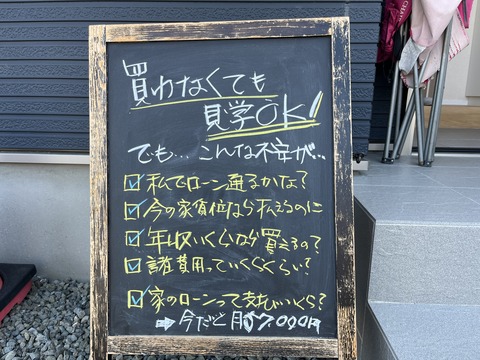 買わなくても
見学OK!
でも…こんな不安が…
☑私でローン通るかな?
☑今の家賃位なら払えるのに
☑年収いくらなら買えるの?
☑諸費用っていくらくらい?
☑家のローンって支払いいくら?
→今だと月57,000円